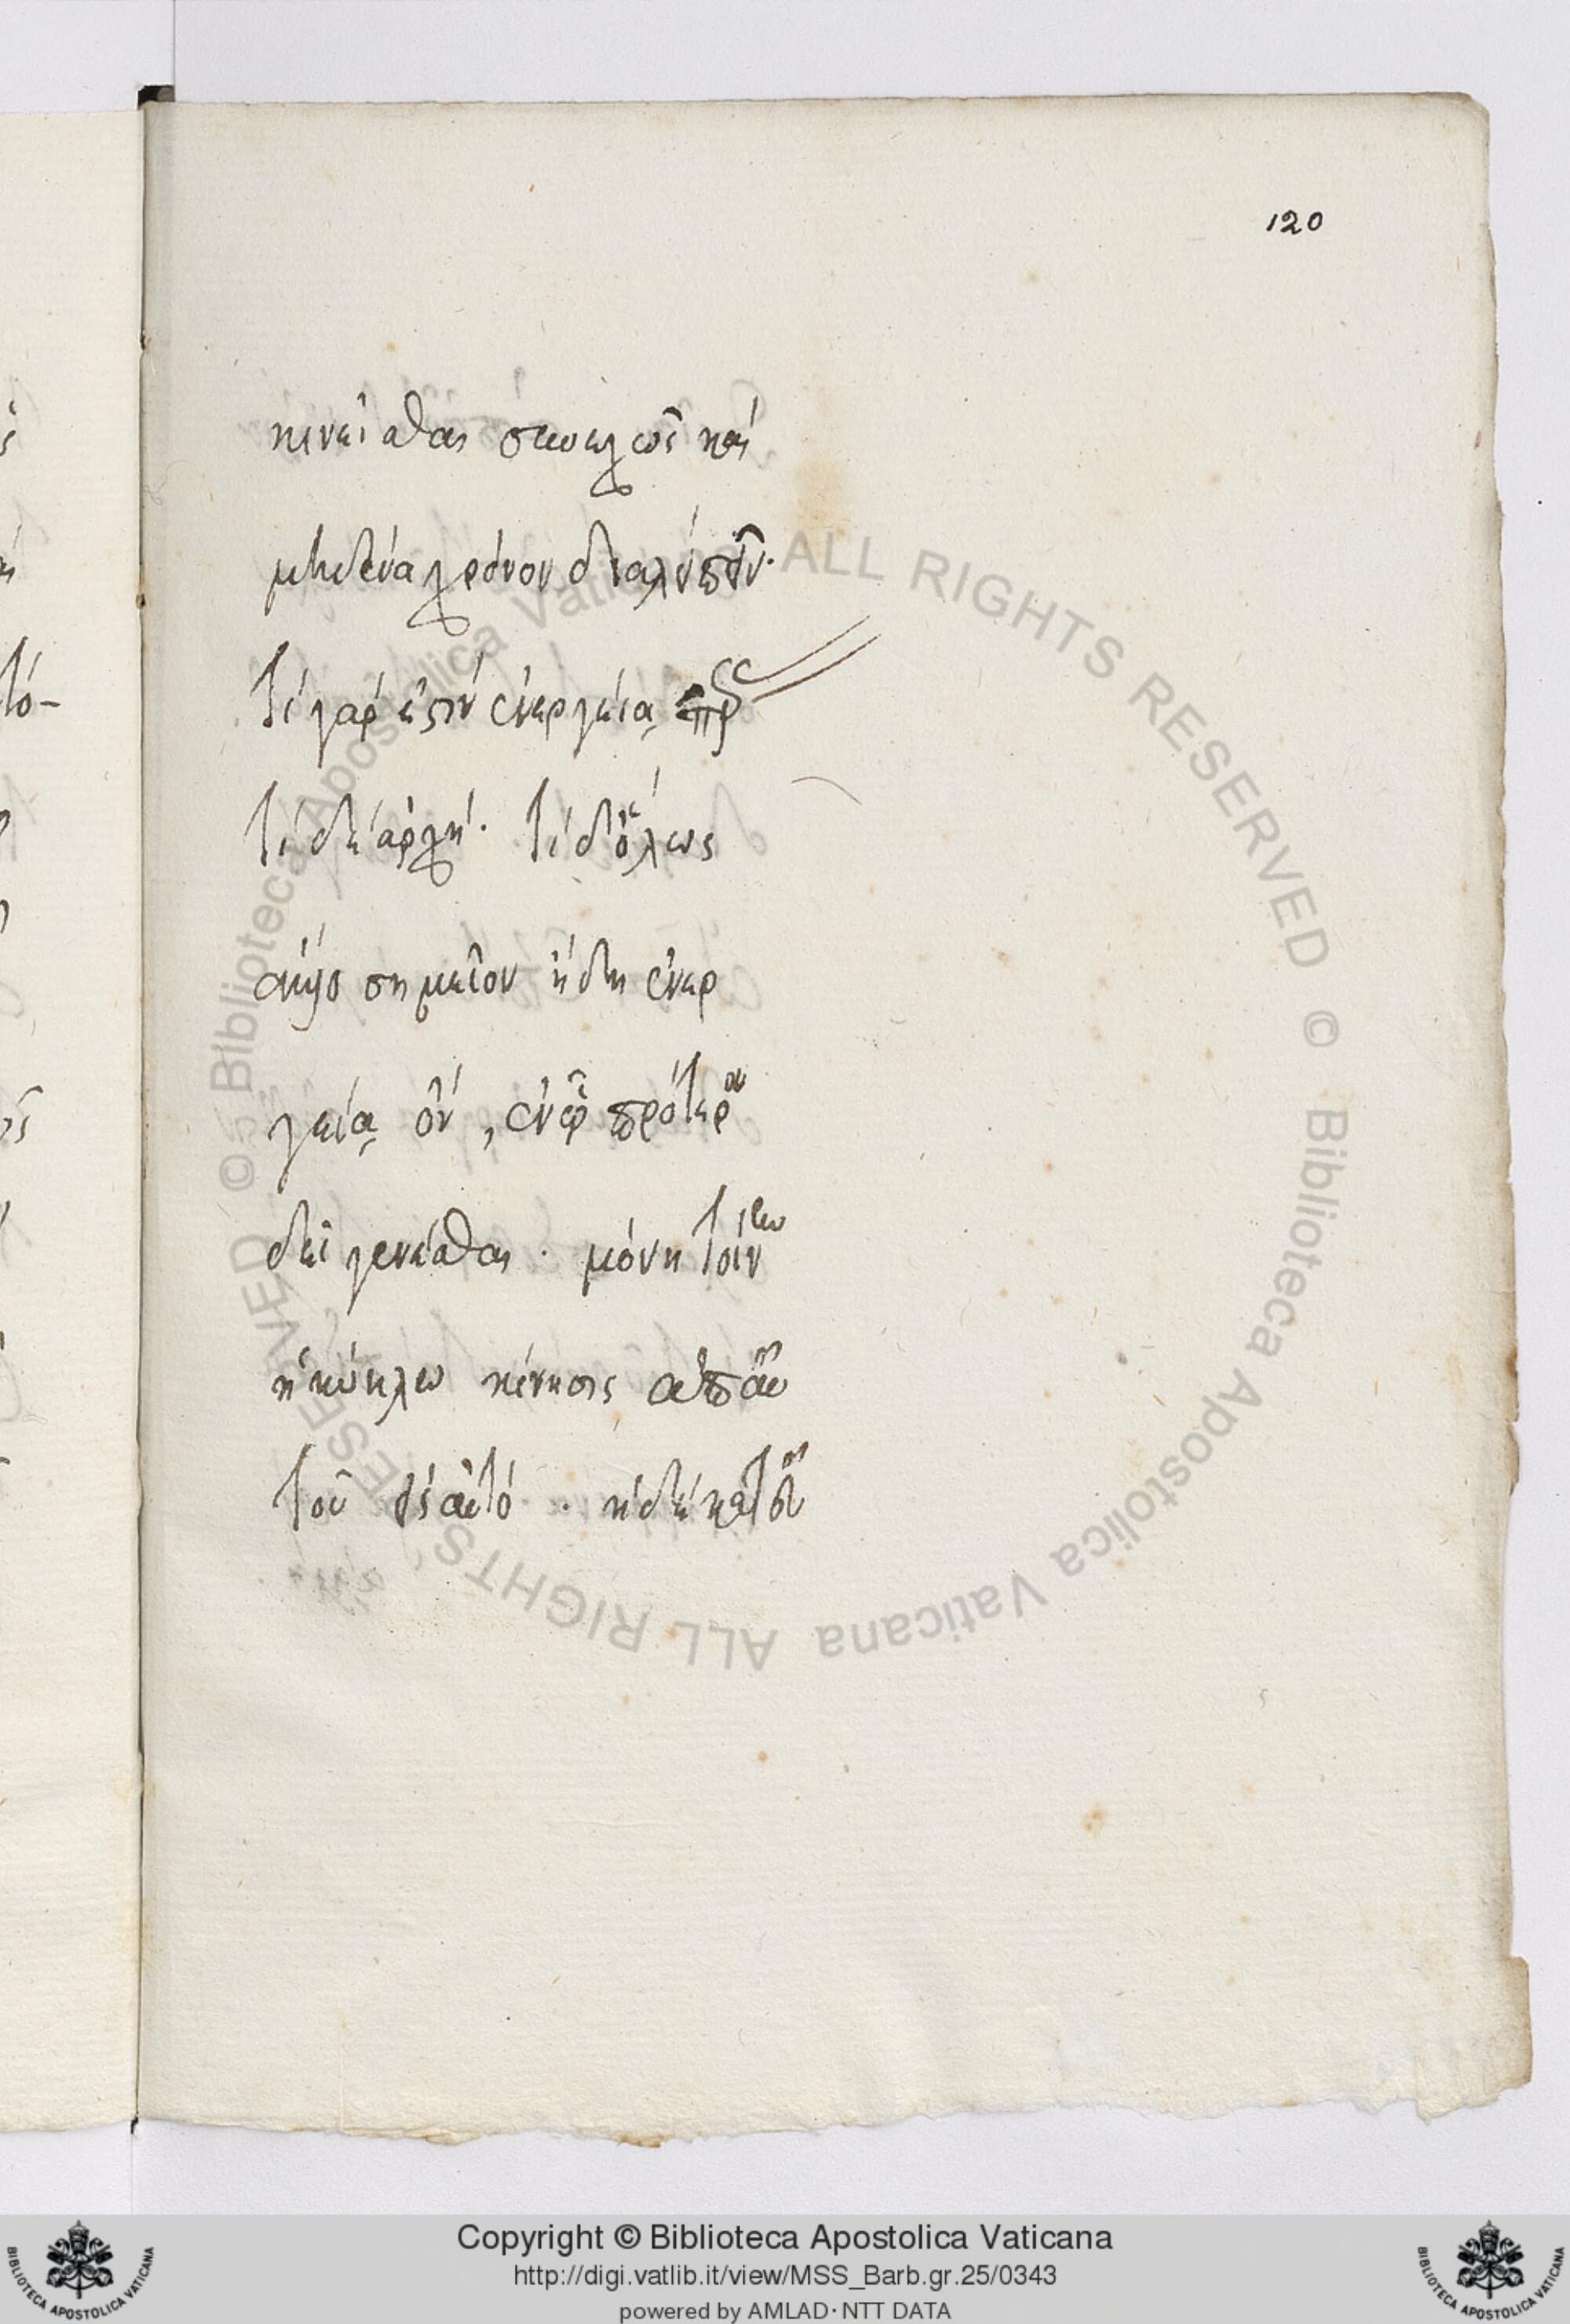 120
κινεῖσθαι συνεχῶς καὶ
μηδένα χρόνον διαλείπειν.
τί γάρ ἐστιν ἐνεργείᾳ
τί δὲ ἀρχή. τί δ' ὅλως
σημεῖον ἤδη ἐνερ
γείᾳ ὄν, ἐν ᾧ πρότερον
δεῖ γενέσθαι. μόνη τοίνυν
ἡ κύκλω κίνησις ἀπὸ αὐ
τοῦ εἰς αὐτό. ἡ δὲ κατὰ
© Biblioteca Apostolica Vaticana ALL RIGHTS RESERVED © Biblioteca Apostolica Vaticana ALL RIGHTS RESERVED
Copyright © Biblioteca Apostolica Vaticana
http://digi.vatlib.it/view/MSS_Barb.gr.25/0343
powered by AMLAD·NTT DATA
BIBLIOTECA APOSTOLICA VATICANA
BIBLIOTECA APOSTOLICA VATICANA